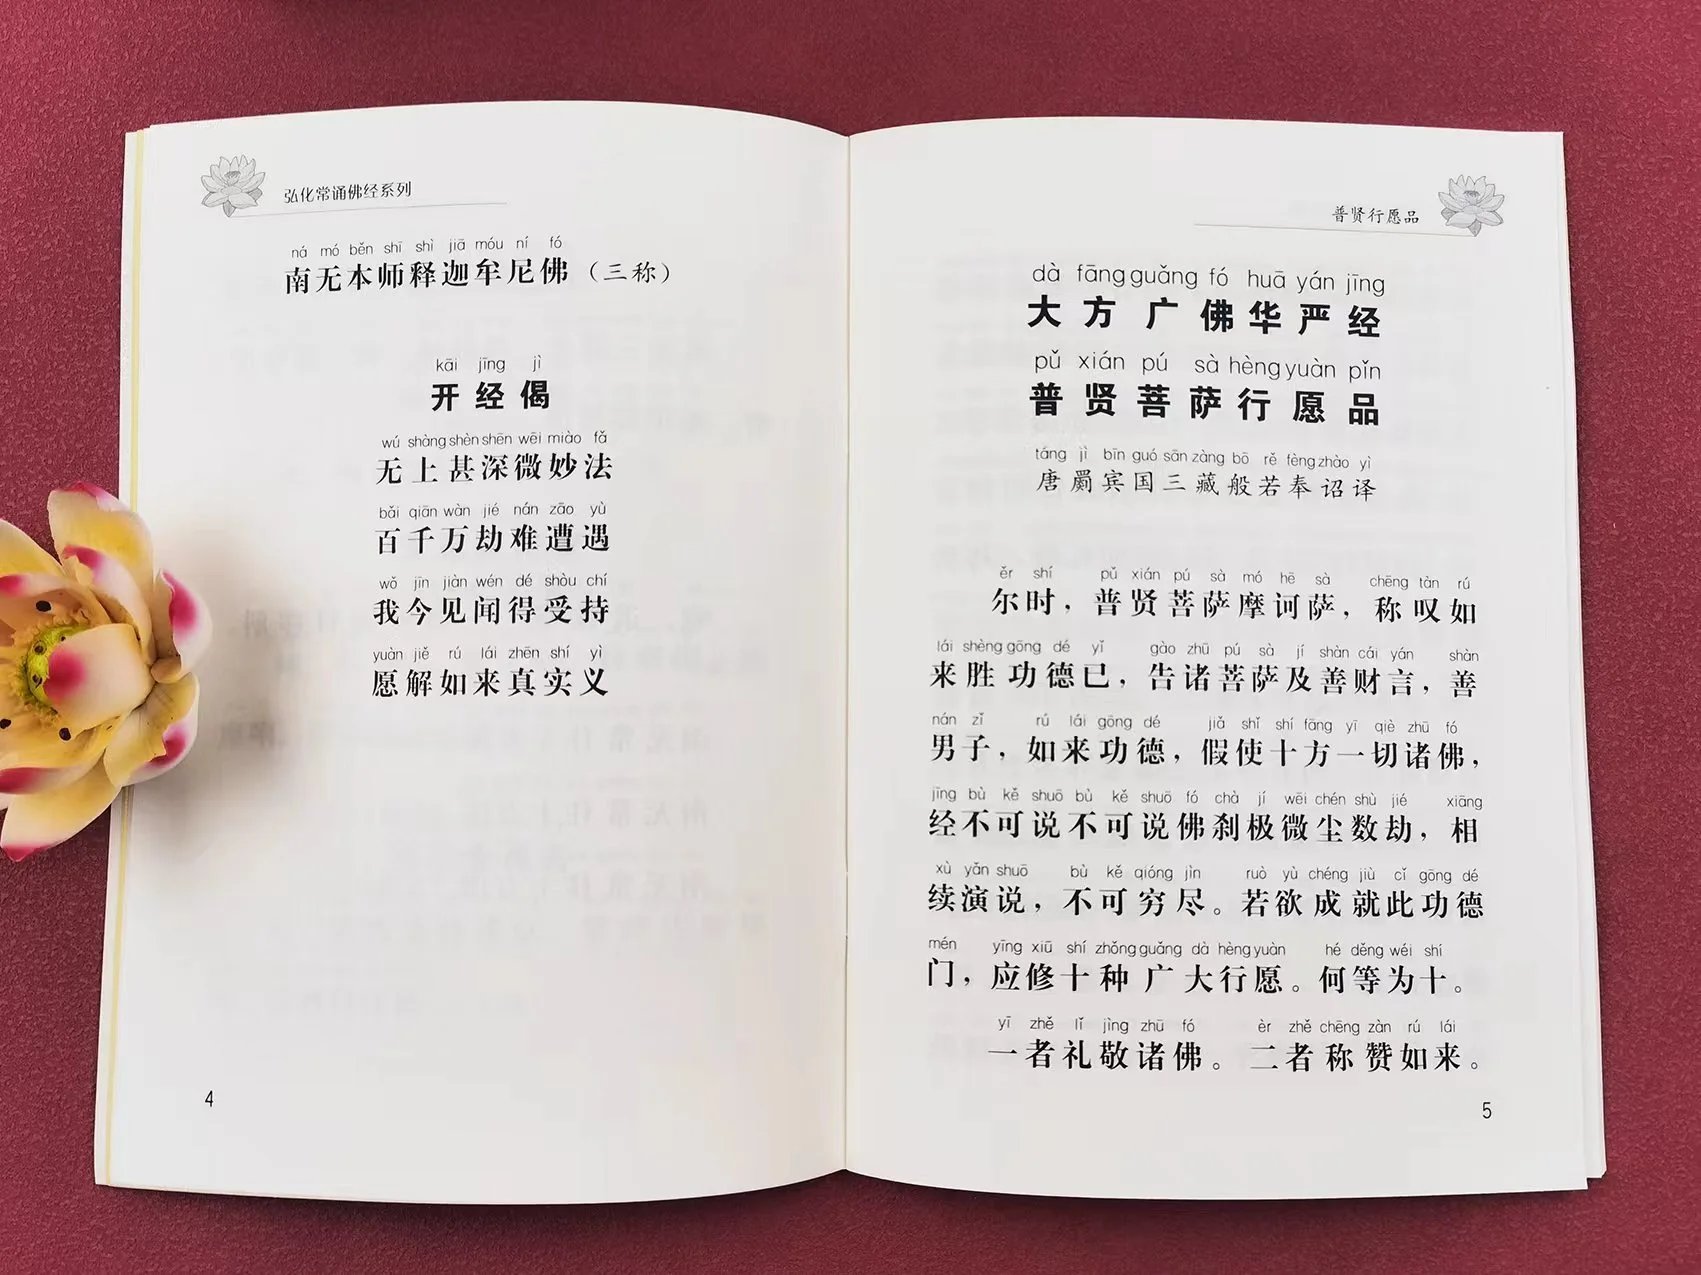 弘化常诵佛经系列
ná mó běn shī shì jiā móu ní fó
南无本师释迦牟尼佛（三称）
kāi jīng jì
开经偈
wú shàng shèn shēn wēi miào fǎ
无上甚深微妙法
bǎi qiān wàn jié nán zāo yù
百千万劫难遭遇
wǒ jīn jiàn wén dé shòu chí
我今见闻得受持
yuàn jiě rú lái zhēn shí yì
愿解如来真实义
4
普贤行愿品
dà fāng guǎng fó huā yán jīng
大方广佛华严经
pǔ xián pú sà hèng yuàn pǐn
普贤菩萨行愿品
táng jì bīn guó sān zàng bō rě fèng zhào yì
唐罽宾国三藏般若奉诏译
ěr shí pǔ xián pú sà mó hē sà chēng tàn rú
尔时，普贤菩萨摩诃萨，称叹如
lái shèng gōng dé yǐ gào zhū pú sà jí shàn cái yán shàn
来胜功德已，告诸菩萨及善财言，善
nán zǐ rú lái gōng dé jiǎ shǐ shí fāng yī qiè zhū fó
男子，如来功德，假使十方一切诸佛，
jīng bù kě shuō bù kě shuō fó chà jí wēi chén shù jié xiāng
经不可说不可说佛刹极微尘数劫，相
xù yǎn shuō bù kě qióng jìn ruò yù chéng jiù cǐ gōng dé
续演说，不可穷尽。若欲成就此功德
mén yīng xiū shí zhǒng guǎng dà hèng yuàn hé děng wéi shí
门，应修十种广大行愿。何等为十。
yī zhě lǐ jìng zhū fó èr zhě chēng zàn rú lái
一者礼敬诸佛。二者称赞如来。
5